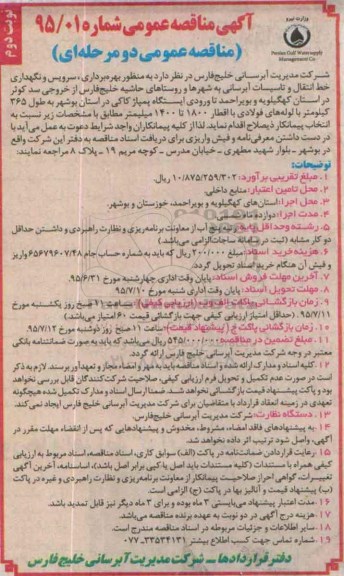 نوبت دوم
آگهی مناقصه عمومی شماره ۹۵/۰۱
(مناقصه عمومی دو مرحله‌ای)
وزارت نیرو
Persian Gulf Watersupply
Management Company
شرکت مدیریت آبرسانی خلیج‌فارس در نظر دارد به منظور بهره‌برداری، سرویس و نگهداری
خط انتقال و تاسیسات آبرسانی به شهرها و روستاهای حاشیه خلیج‌فارس از خروجی سد کوثر
در استان کهگیلویه و بویراحمد تا ورودی ایستگاه پمپاژ کاکی در استان بوشهر به طول ۳۶۵
کیلومتر با لوله‌های فولادی با اقطار ۱۸۰۰ تا ۱۴۰۰ میلیمتر مطابق با مشخصات زیر نسبت به
انتخاب پیمانکار ذیصلاح اقدام نماید. لذا از کلیه پیمانکاران واجد شرایط دعوت به عمل می‌آید با
در دست داشتن معرفی‌نامه و فیش واریزی برای دریافت اسناد مناقصه به دفتر این شرکت واقع
در بوشهر - بلوار شهید مطهری - خیابان مدرس - کوچه مریم ۱۹ - پلاک ۸ مراجعه نمایند:
توضیحات:
۱. مبلغ تقریبی برآورد: ۱۰/۸۷۵/۲۵۹/۳۰۲ ریال.
۲. محل تامین اعتبار: منابع داخلی.
۳. محل اجرا: استان‌های کهگیلویه و بویراحمد، خوزستان و بوشهر.
۴. مدت اجرا: دوازده ماه شمسی.
۵. رشته و حداقل پایه: رتبه پنج آب از معاونت برنامه‌ریزی و نظارت راهبردی و داشتن حداقل
دو کار مشابه (ثبت در سامانه ساجات الزامی می‌باشد)
۶. هزینه خرید اسناد: مبلغ ۲۰۰/۰۰۰ ریال که باید به شماره حساب جام ۶۵۶۷۹۶۰۷/۴۸ واریز
و فیش آن هنگام خرید اسناد تحویل گردد.
۷. آخرین مهلت فروش اسناد: پایان وقت اداری چهارشنبه مورخ ۹۵/۶/۳۱.
۸. مهلت تحویل اسناد: پایان وقت اداری شنبه مورخ ۹۵/۷/۱۰
۹. زمان بازگشائی پاکت الف و ب (ارزیابی کیفی): ساعت ۱۱ صبح روز یکشنبه مورخ
۹۵/۷/۱۱. (حداقل امتیاز ارزیابی کیفی جهت بازگشائی قیمت ۶۰ امتیاز می‌باشد.)
۱۰. زمان بازگشائی پاکت ج (پیشنهاد قیمت): ساعت ۱۱ صبح روز دوشنبه مورخ ۹۵/۷/۱۲
۱۱. مبلغ تضمین در مناقصه: ۵۴۵/۰۰۰/۰۰۰ ریال می‌باشد که باید به صورت ضمانتنامه بانکی
معتبر در وجه شرکت مدیریت آبرسانی خلیج فارس ارائه گردد.
۱۲. کلیه اسناد و مدارک ارائه شده و اسناد مناقصه باید به مهر و امضاء مجاز و تعهدآور برسند. لازم به ذکر
است در صورت عدم تکمیل و تحویل فرم ارزیابی کیفی، صلاحیت شرکت‌کنندگان قابل بررسی نخواهد
بود و پاکت پیشنهاد قیمت بازگشائی نخواهد شد. ضمناً ارسال اسناد و مدارک تکمیل شده هیچگونه
تعهدی در زمینه انعقاد قرارداد با متقاضیان برای شرکت مدیریت آبرسانی خلیج فارس ایجاد نمی‌کند.
۱۳. دستگاه نظارت: شرکت مدیریت آبرسانی خلیج‌فارس.
۱۴. به پیشنهادهای فاقد امضاء، مشروط، مخدوش و پیشنهادهایی که پس از انقضاء مهلت مقرر در
آگهی، واصل شود ترتیب اثر داده نخواهد شد.
۱۵. رعایت قراردادن ضمانت‌نامه در پاکت (الف) سوابق کاری، اسناد مناقصه، اسناد مربوط به ارزیابی
کیفی همراه با مستندات (کلیه مستندات باید اصل یا کپی برابر اصل باشد)، اساسنامه، آخرین آگهی
تغییرات، گواهی احراز صلاحیت پیمانکار از معاونت برنامه‌ریزی و نظارت راهبردی و غیره در پاکت
(ب) پیشنهاد قیمت و آنالیز بها در پاکت (ج) الزامی است.
۱۶. مدت اعتبار پیشنهاد می‌بایستی ۳ ماه بوده و برای ۳ ماه دیگر نیز قابل تمدید باشد.
۱۷. هزینه درج آگهی در دو نوبت به عهده برنده مناقصه می‌باشد.
۱۸. سایر اطلاعات و جزئیات مربوطه در اسناد مناقصه مندرج است.
۱۹. شماره تماس جهت کسب اطلاع بیشتر ۳۳۵۳۴۱۳۱-۰۷۷
دفتر قراردادها - شرکت مدیریت آبرسانی خلیج فارس